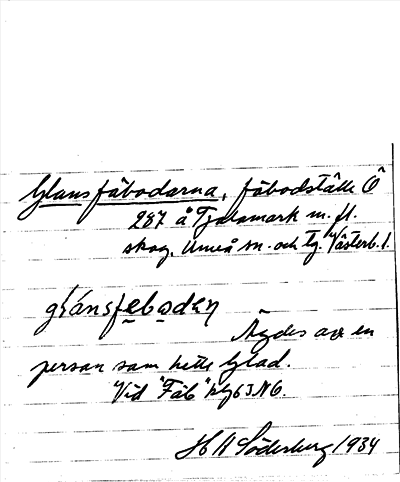 Glansfäbodarna, fäbodställe Ö
287 å Tjälamark m. fl.
skog, Umeå sn. och tg. Västerb. l.
glánsfebodεn
Ägdes av en
person som hette Glad.
Vid "Fäb" kbl 63 N6.
H A Söderberg 1934